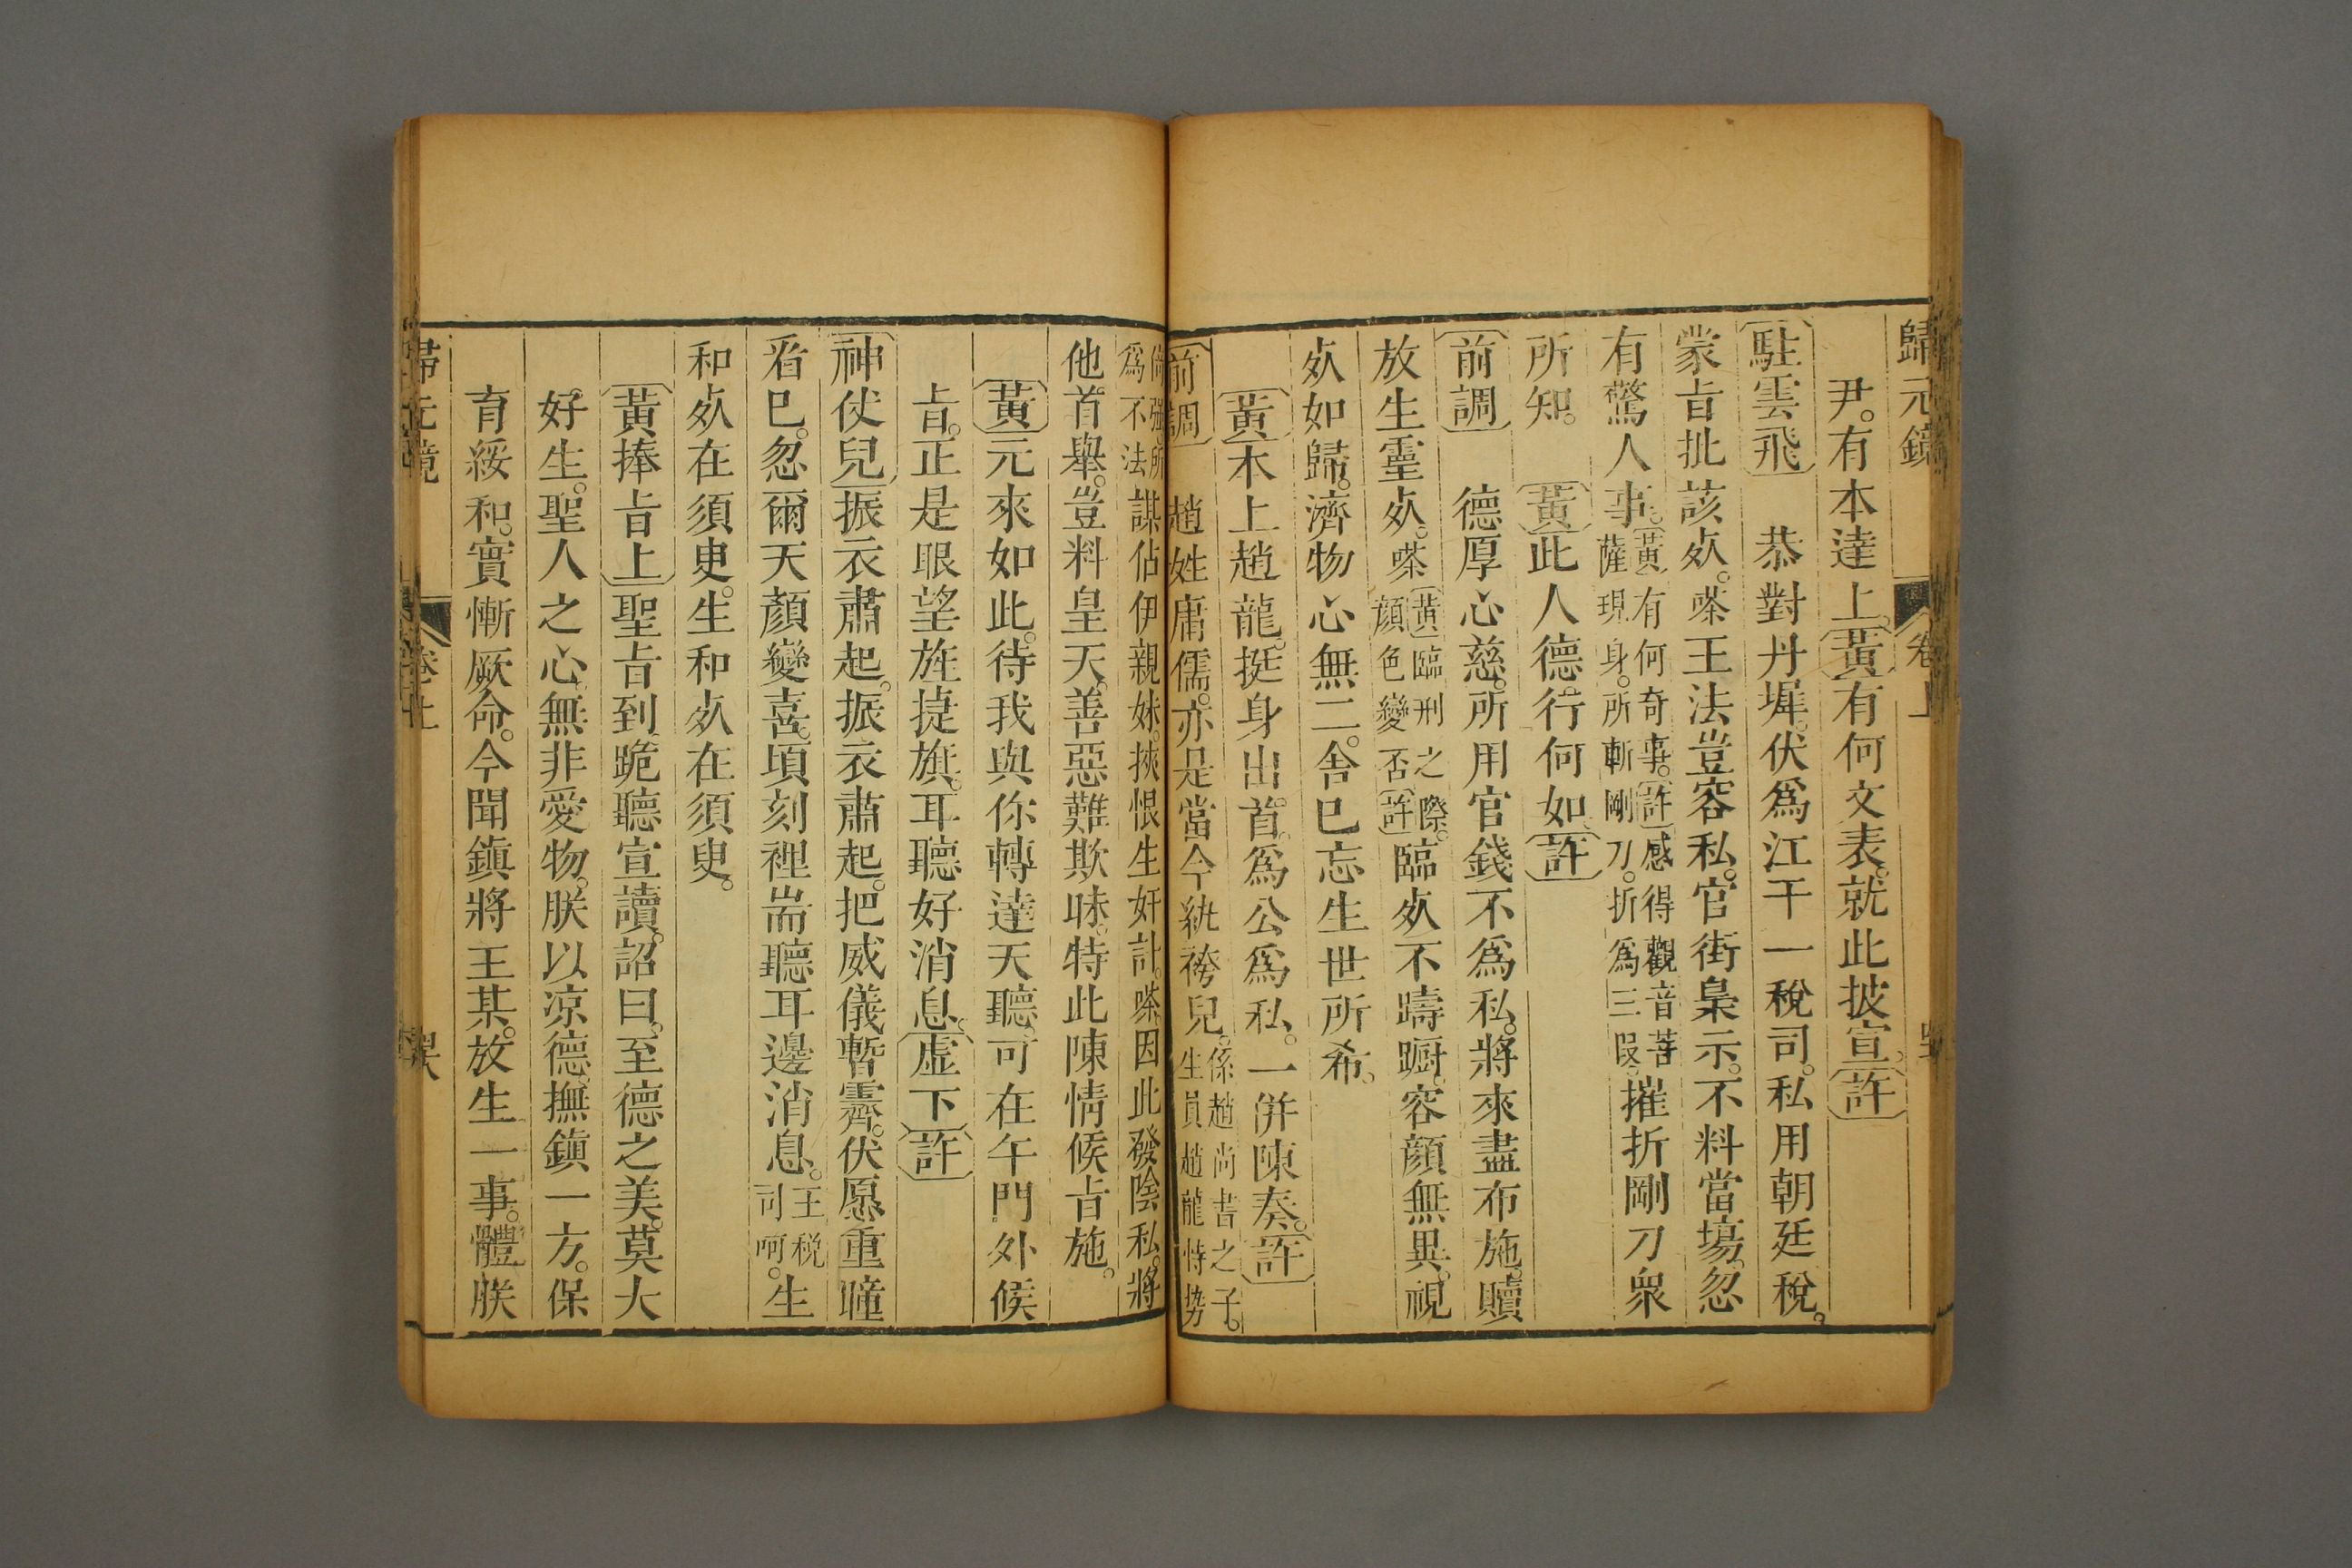 歸元鏡 卷上
尹。有本達上。黃有何文表。就此披宣。許
駐雲飛 恭對丹墀。伏爲江干一稅司。私用朝廷稅。
蒙旨批該𣦸。嗏王法豈容私。官街梟示。不料當塲。忽
有驚人事。黃有何奇事。許感得觀音菩
薩現身。所斬剛刀。折爲三叚。摧折剛刀衆
所知。 黃此人德行何如。許
前調 德厚心慈。所用官錢不爲私。將來盡布施。贖
放生靈𣦸。嗏黃臨刑之際。
顔色變否許臨𣦸不躊蹰。容顔無異。視
𣦸如歸。濟物心無二。舍巳忘生世所希。
黃本上趙龍。挺身出首。爲公爲私。一併陳奏。許
前調 趙姓庸儒。亦是當今紈袴兒。係趙尚書之子。
生員趙龍恃势
倚強。所
爲不法謀佔伊親妹。挾恨生奸計。嗏因此發陰私。將
他首舉。豈料皇天。善惡難欺昧。特此陳情候旨施。
黃元來如此。待我與你轉達天聽。可在午門外候
旨。正是眼望旌捷旗。耳聽好消息。虛下許
神仗兒振衣肅起。振衣肅起。把威儀暫霽。伏愿重瞳
㸔巳。忽爾天顔變喜。頃刻裡耑聽耳邊消息。王稅
司呵。生
和𣦸在須臾。生和𣦸在須臾。
黃捧旨上聖旨到跪聽宣讀。詔曰。至德之美。莫大
好生。聖人之心。無非愛物。朕以凉德。撫鎮一方。保
育綏和。實慚厥命。今聞鎮將王某。放生一事。體朕
歸元鏡 卷上